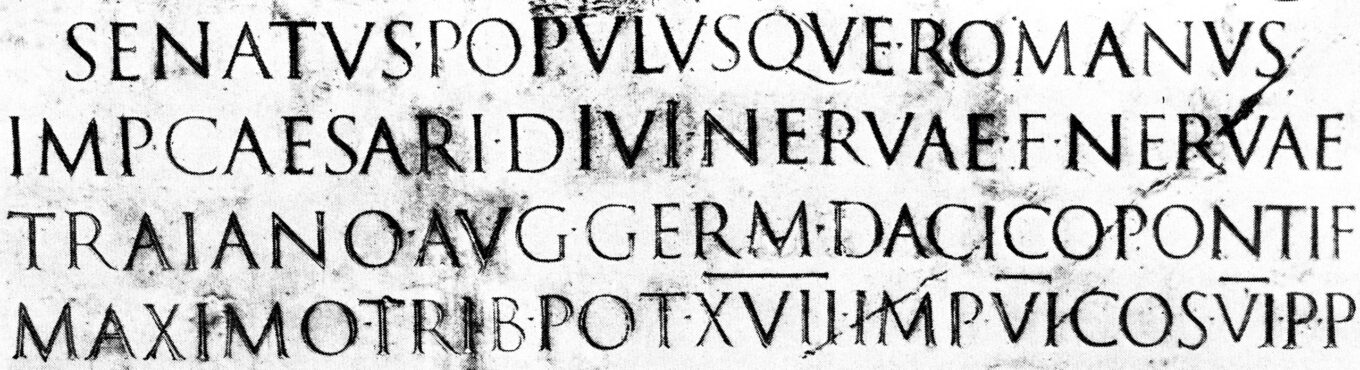 SENATVS·POPVLVSQVE·ROMANVS
IMP·CAESARI·DIVI·NERVAE·F·NERVAE
TRAIANO·AVG·GERM·DACICO·PONTIF
MAXIMO·TRIB·POT·XVII·IMP·VI·COS·VI·P·P